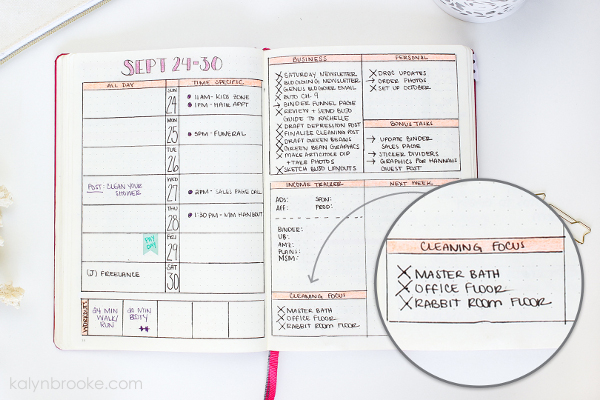 SEPT 24-30
ALL DAY
TIME SPECIFIC
SUN
24
11AM - KIDS ZONE
1PM - HAIR APPT
MON
25
5PM - FUNERAL
TUE
26
WED
27
POST: CLEAN YOUR
SHOWER
2PM - SALES PAGE
THUR
28
1:30 PM -
FRI
29
PAY
DAY
SAT
30
(J) FREELANCE
WORKOUTS
MIN
WALK/
RUN
20 MIN
BUTY
BUSINESS
SATURDAY NEWSLETTER
NEWSLETTER
GENIUS BLOGGER EMAIL
BINDER FUNNEL PAGE
REVIEW + SEND BLBD
GUIDE TO RACHELLE
DRAFT DEPRESSION POST
FINALIZE CLEANING POST
DRAFT GREEN BEANS
GREEN BEAN GRAPHICS
MAKE ARTICHOKE DIP
+ TAKE PHOTOS
SKETCH BLBD LAYOUTS
PERSONAL
UPDATES
ORDER PHOTOS
SET UP OCTOBER
BONUS TASKS
UPDATE BINDER
SALES PAGE
STICKER DIVIDERS
GRAPHICS FOR HANNAH'S
GUEST POST
INCOME TRACKER
NEXT WEEK
ADS:
SPON:
AFF:
PROD:
BINDER:
UB:
AMZ:
PLAN:
MSM:
CLEANING FOCUS
MASTER BATH
OFFICE FLOOR
RABBIT ROOM FLOOR
CLEANING FOCUS
MASTER BATH
OFFICE FLOOR
RABBIT ROOM FLOOR
kalynbrooke.com